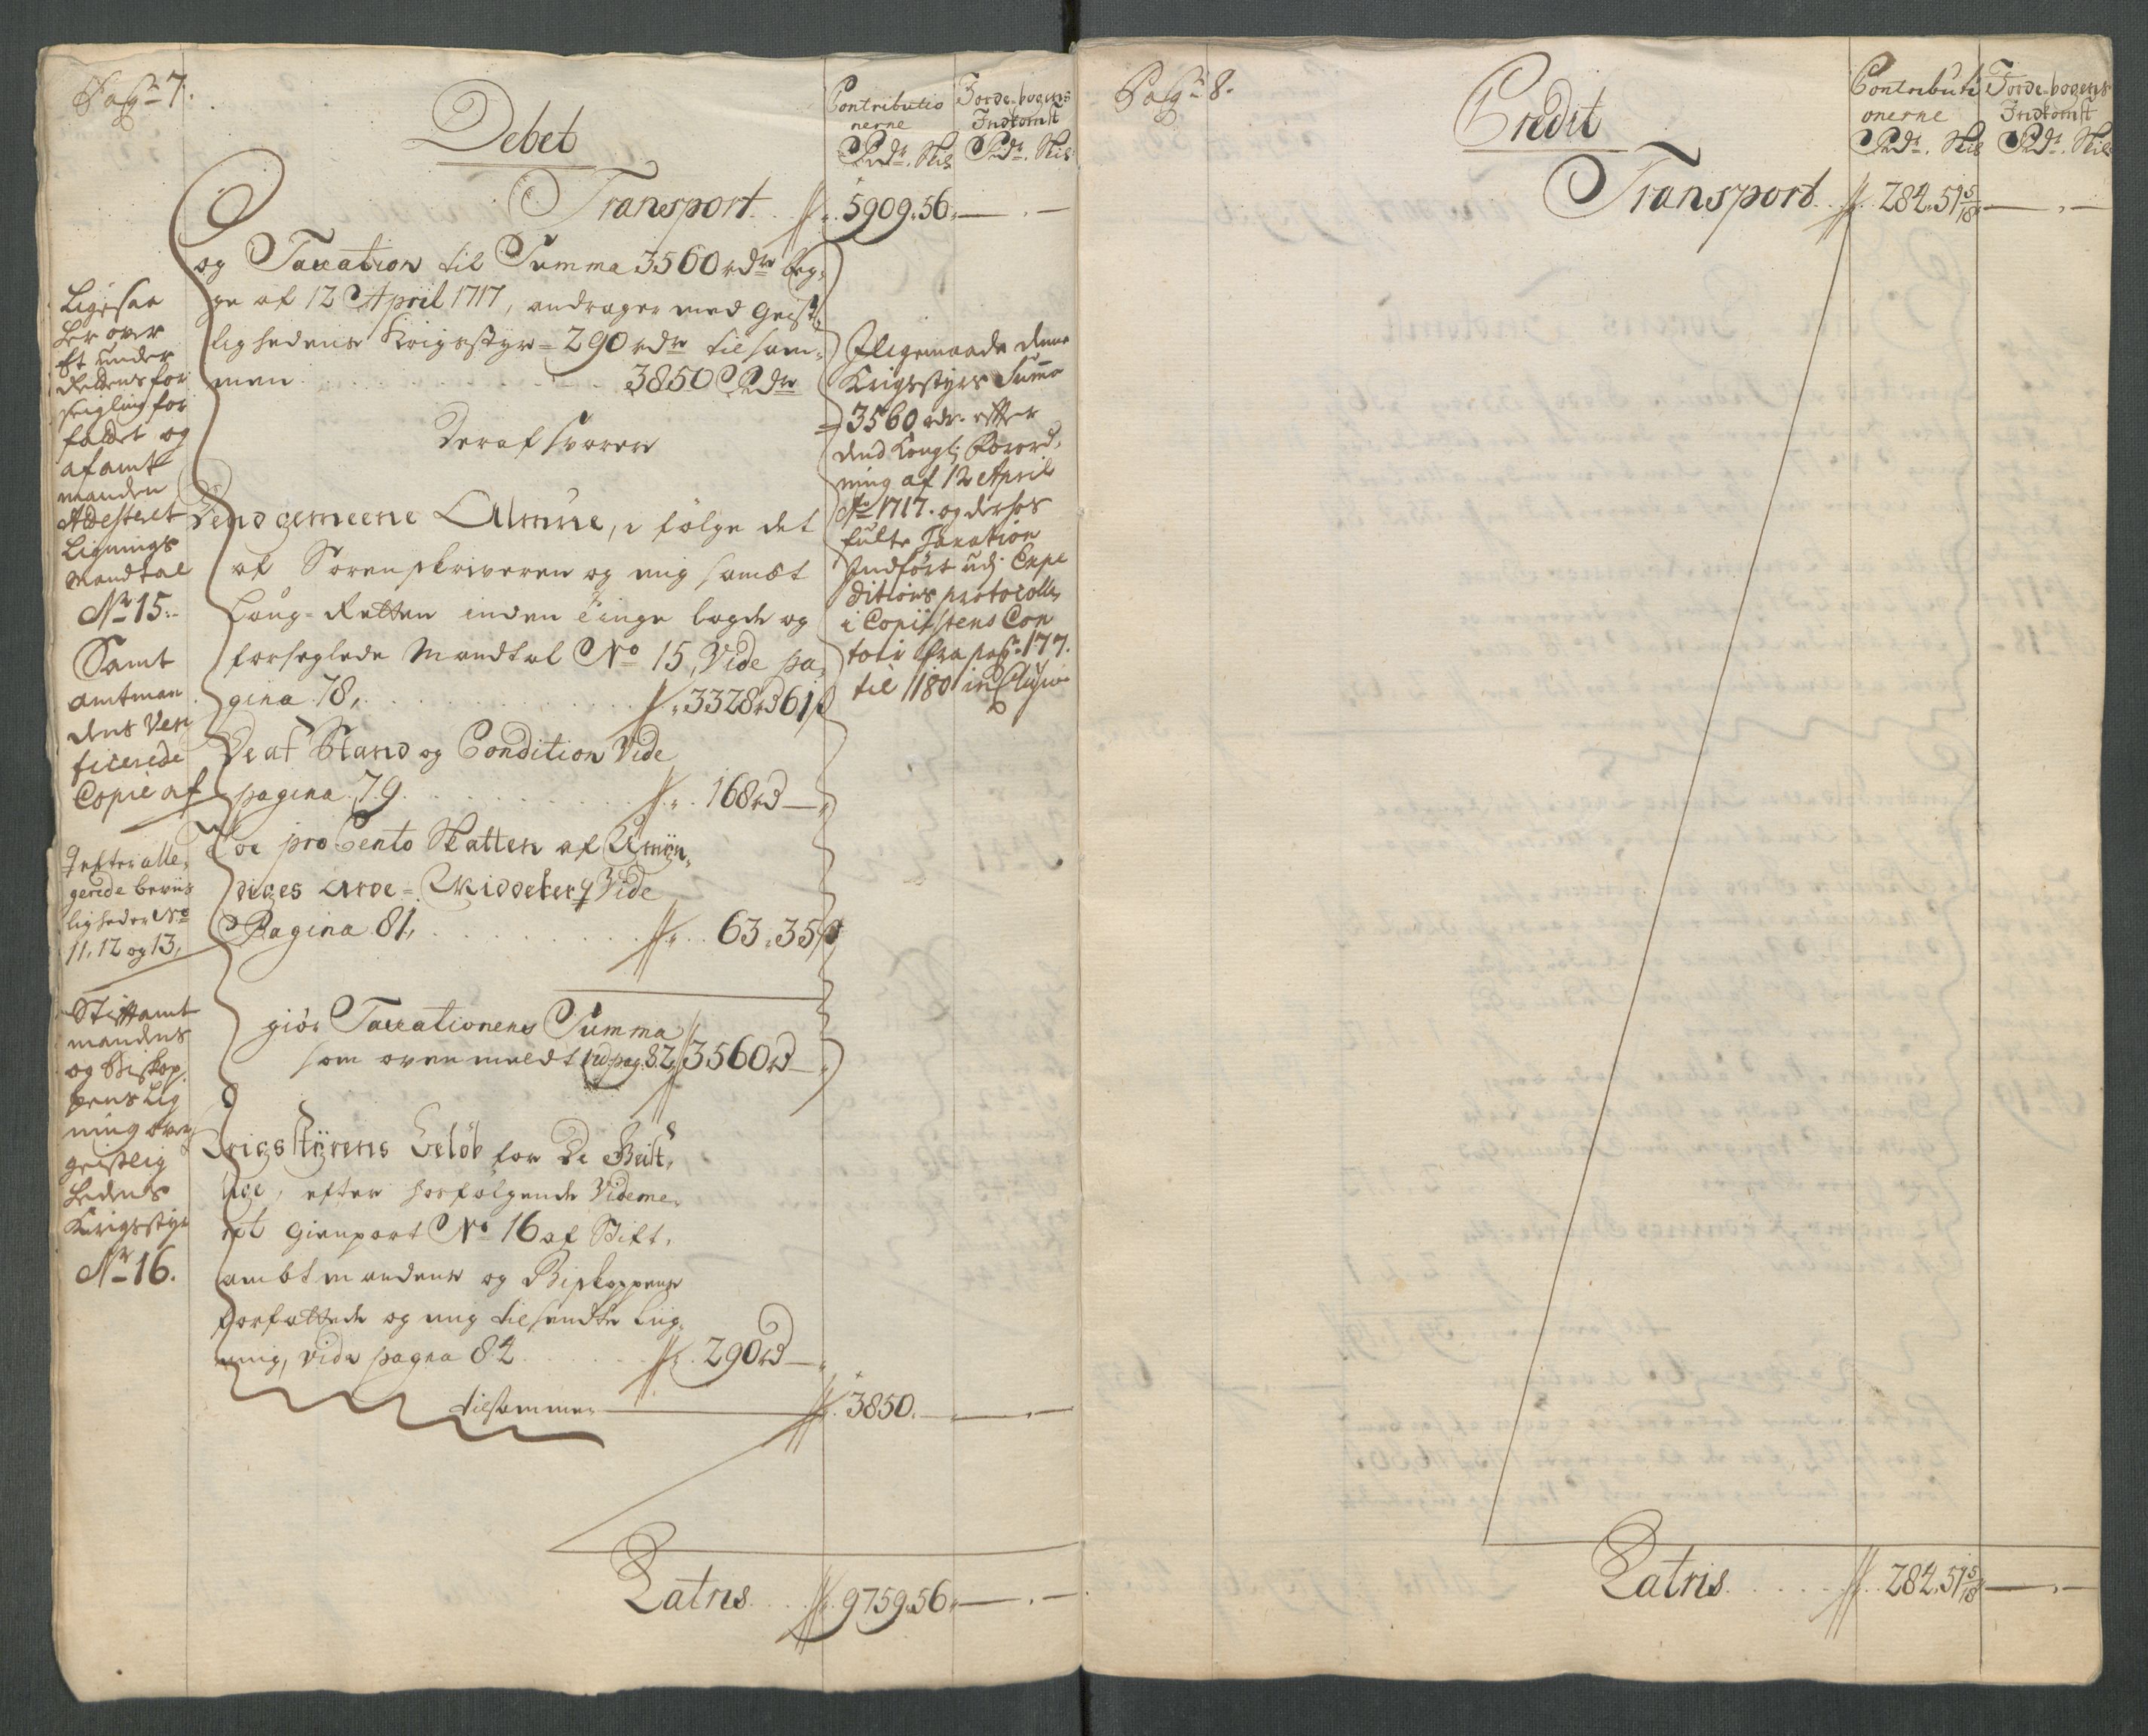 Pag: 7.
Debet
Contributio
nerne
Rdr. Skil
Jordebogens
Indkomst
Rdr. Skil
Transport 5909. 56.
og Taxation til Summa 3560 rdr beg-
ge af 12 April 1717, andrager med Geist-
lighedens Krigsstyr = 290 rdr tilsam-
men 3850 Rdr
Deraf svarer
Dend gemeene Almue, i følge det
af Sorenskriveren og mig samt
Laug-Retten inden Tinge lagde og
forseglede Mandtal No 15, Vide pa-
gina 78, 3328 rd 61 s
De af Stand og Condition Vide
pagina 79. 168 rd
Toe pro Cento Skatten af Umyn-
diges Arve-Middeler Vide
Pagina 81, 63. 35 s
giør Taxationens Summa
som ovenmeldt Vid pag: 82, 3560 rd
Krigsstyrens Beløb for De Geist-
lige, efter hosfølgende Videme-
ret Gienpart No 16 af Stift-
ambtmandens og Biskoppens
forfattede og mig tilsendte Lig-
ning, vide pagna 82 290 rd
tilsammen 3850.
Latris 9759. 56.
Ligesaa
her over
Et under
Rettens for
seigling for
fattet og
af amt
manden
Attesteret
Lignings
Mandtal
Nr 15.
Samt
amtman
dens Veri
ficerede
Copie af
efter alle-
gerede beviis
ligheder No
11, 12 og 13,
Stiftamt
mandens
og Biskop
pens Lig
ning over
geistlig
hedens
Krigsstyr
Nr 16.
Iligemaade denne
Krigsstyrs Summa
3560 rdr. efter
dend Kongl: Forord-
ning af 12 April
Ao 1717. og derhos
fulte Taxation
Indført udj Expe
ditions protocollen
i Copiistens Con
toir fra pag: 177.
til 180 inclusive
Pag: 8.
Credit
Contributi
onerne
Rdr. Skil
Jordebogens
Indkomst
Rdr. Skil
Transport 284. 51 5/18
Latris 284. 51 5/18